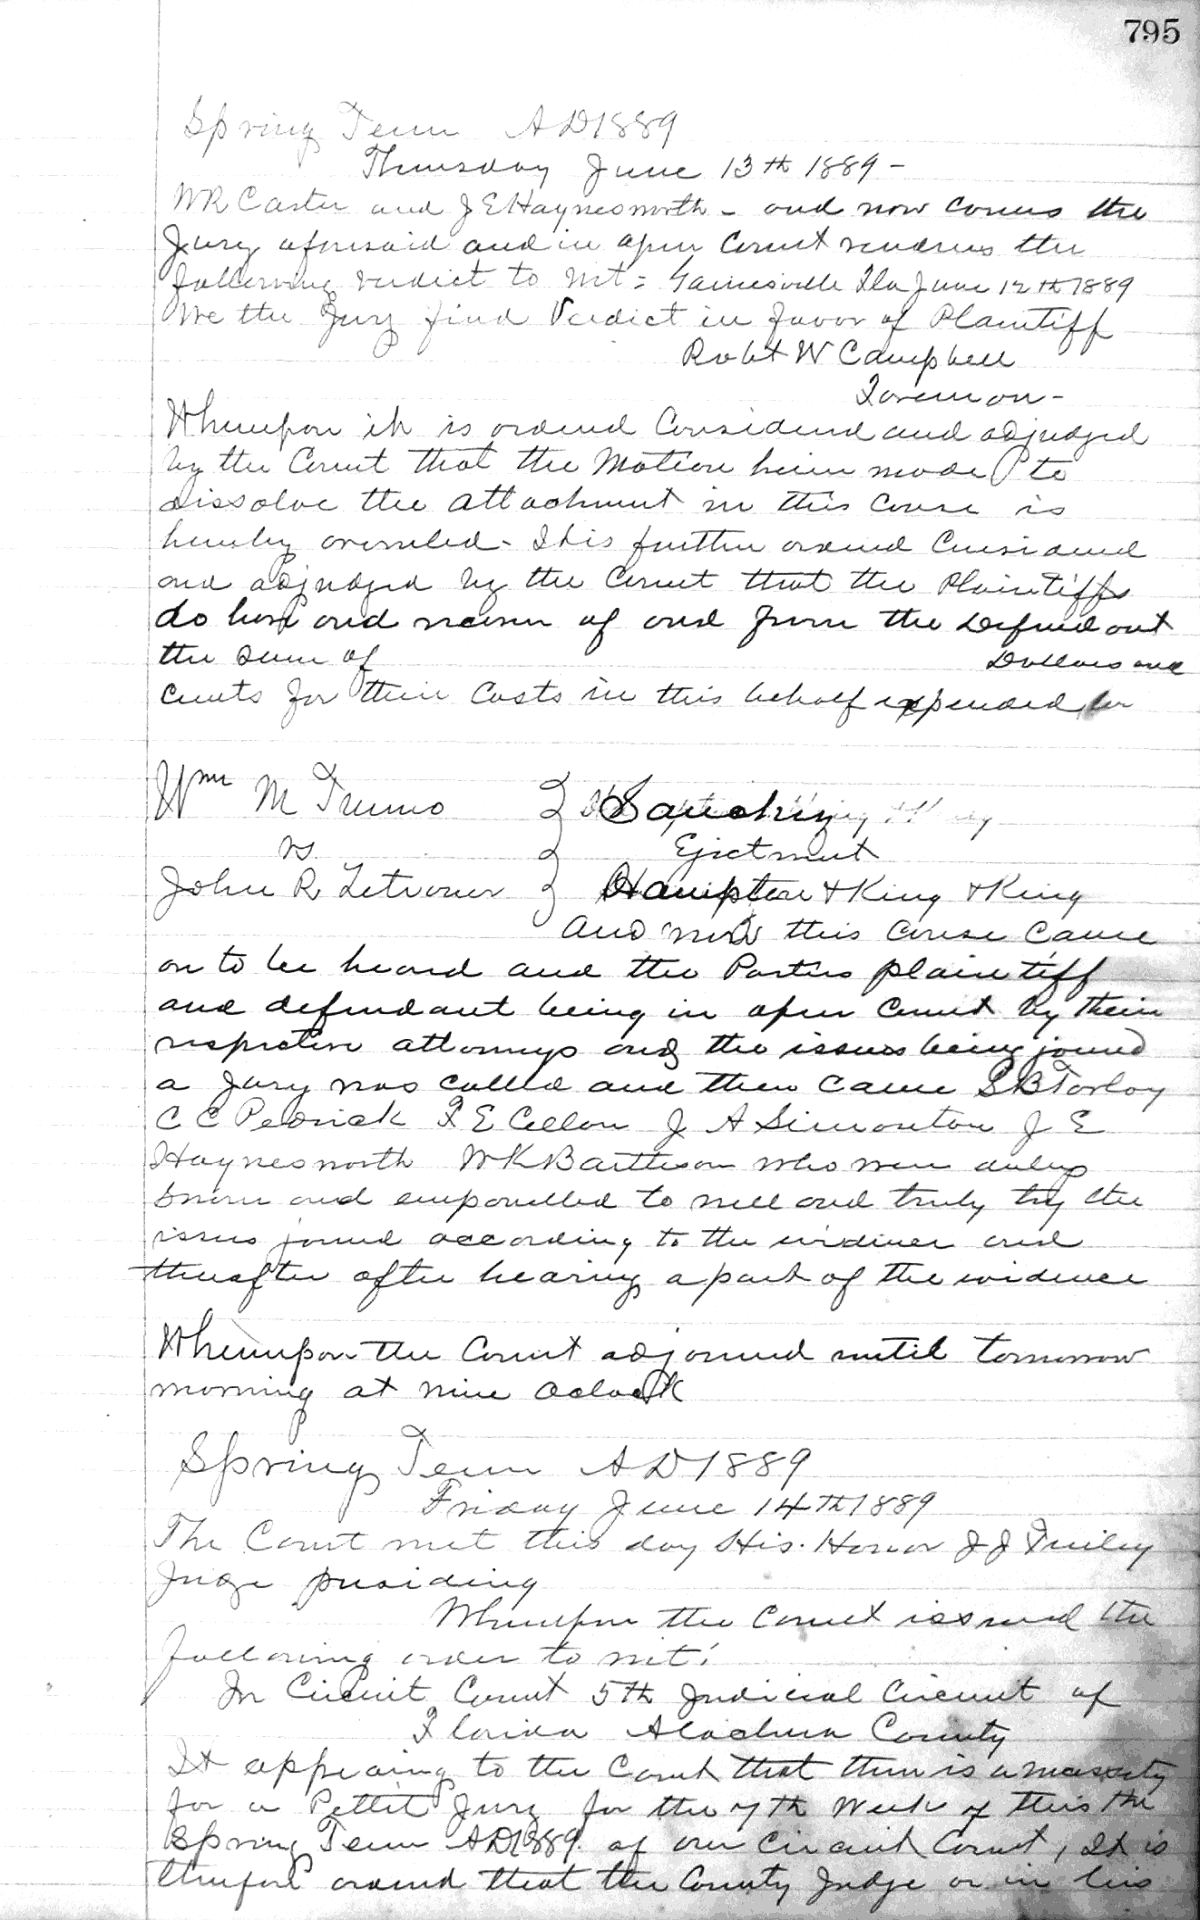 795
Spring Term AD1889
Thursday June 13th 1889 -
WR Carter and J E Haynesworth - and now comes the
Jury aforesaid and in open Court renders the
following verdict to wit: Gainesville Fla June 12th 1889
We the Jury find Verdict in favor of Plaintiff
Robt W Campbell
Foreman -
Whereupon it is ordered Considered and adjudged
by the Court that the Motion herein made to
dissolve the attachment in this Cause is
hereby overruled - It is further ordered Considered
and adjudged by the Court that the Plaintiffs
do have and recover of and from the Defendant
the sum of Dollars and
Cents for their Costs in this behalf expended
Wm M
vs
John R
Ejectment
Hampton & King & King
And now this Cause Came
on to be heard and the Parties plaintiff
and defendant being in open Court by their
respective attorneys and the issues being joined
a Jury was called and then Came S B
C C Pedrick F E Cellon J A Simonton J E
Haynesworth W K who were duly
sworn and empanelled to well and truly try the
issues joined according to the evidence and
thereafter after hearing a part of the evidence
Whereupon the Court adjourned until tomorrow
morning at nine oclock
Spring Term AD1889
Friday June 14th 1889
The Court met this day His Honor J J Finley
Judge presiding
Whereupon the Court issued the
following order to wit:
In Circuit Court 5th Judicial Circuit of
Florida Alachua County
It appearing to the Court that there is a necessity
for a Pettit Jury for the 7th Week of this the
Spring Term AD1889 of our Circuit Court, It is
therefore ordered that the County Judge or in his